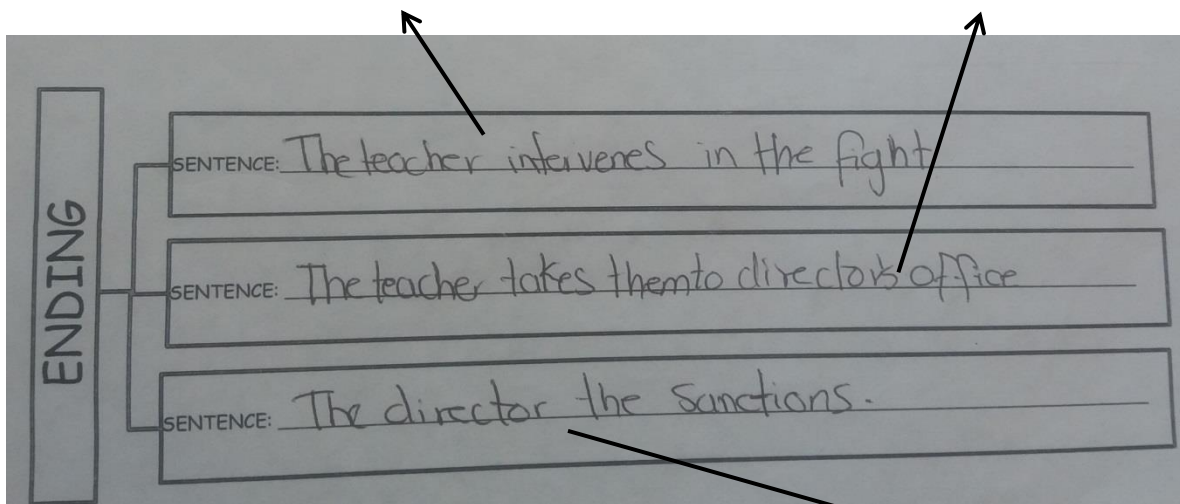 ENDING
SENTENCE: The teacher intervenes in the fight
SENTENCE: The teacher takes them to director's office
SENTENCE: The director the sanctions.